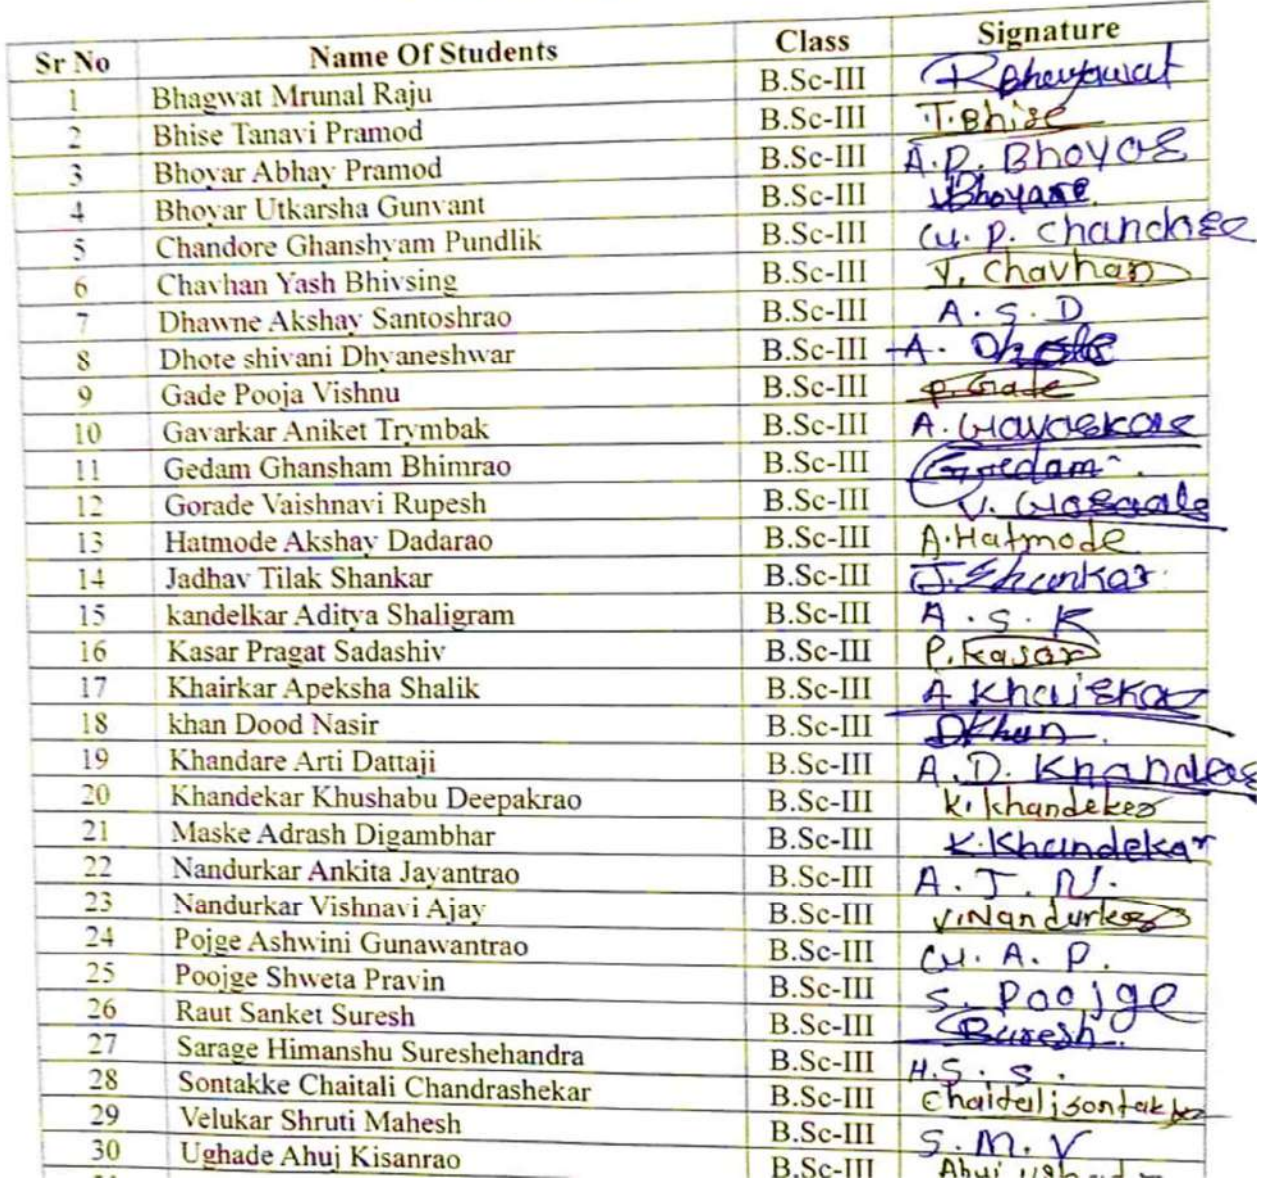 Sr No Name Of Students Class Signature
1 Bhagwat Mrunal Raju B.Sc-III
2 Bhise Tanavi Pramod B.Sc-III T.Bhise
3 Bhoyar Abhay Pramod B.Sc-III A.P. Bhoyar
4 Bhoyar Utkarsha Gunvant B.Sc-III
5 Chandore Ghanshyam Pundlik B.Sc-III G. P. Chandore
6 Chavhan Yash Bhivsing B.Sc-III Y. Chavhan
7 Dhawne Akshay Santoshrao B.Sc-III A. S. D
8 Dhote shivani Dhyaneshwar B.Sc-III A. Dhote
9 Gade Pooja Vishnu B.Sc-III P. Gade
10 Gavarkar Aniket Trymbak B.Sc-III A. Gavarkar
11 Gedam Ghansham Bhimrao B.Sc-III Gedam
12 Gorade Vaishnavi Rupesh B.Sc-III V.
13 Hatmode Akshay Dadarao B.Sc-III A.Hatmode
14 Jadhav Tilak Shankar B.Sc-III J. Shankar
15 kandelkar Aditya Shaligram B.Sc-III A. S. K
16 Kasar Pragat Sadashiv B.Sc-III P. Kasar
17 Khairkar Apeksha Shalik B.Sc-III A Khairkar
18 khan Dood Nasir B.Sc-III DKhan
19 Khandare Arti Dattaji B.Sc-III A. D.
20 Khandekar Khushabu Deepakrao B.Sc-III K. Khandeker
21 Maske Adrash Digambhar B.Sc-III K. Khandekar
22 Nandurkar Ankita Jayantrao B.Sc-III A. J. N.
23 Nandurkar Vishnavi Ajay B.Sc-III V. Nandurkar
24 Pojge Ashwini Gunawantrao B.Sc-III G. A. P.
25 Poojge Shweta Pravin B.Sc-III S. Poojge
26 Raut Sanket Suresh B.Sc-III Suresh
27 Sarage Himanshu Sureshehandra B.Sc-III H.S. S.
28 Sontakke Chaitali Chandrashekar B.Sc-III Chaitali sontakke
29 Velukar Shruti Mahesh B.Sc-III S. M. V
30 Ughade Ahuj Kisanrao B.Sc-III